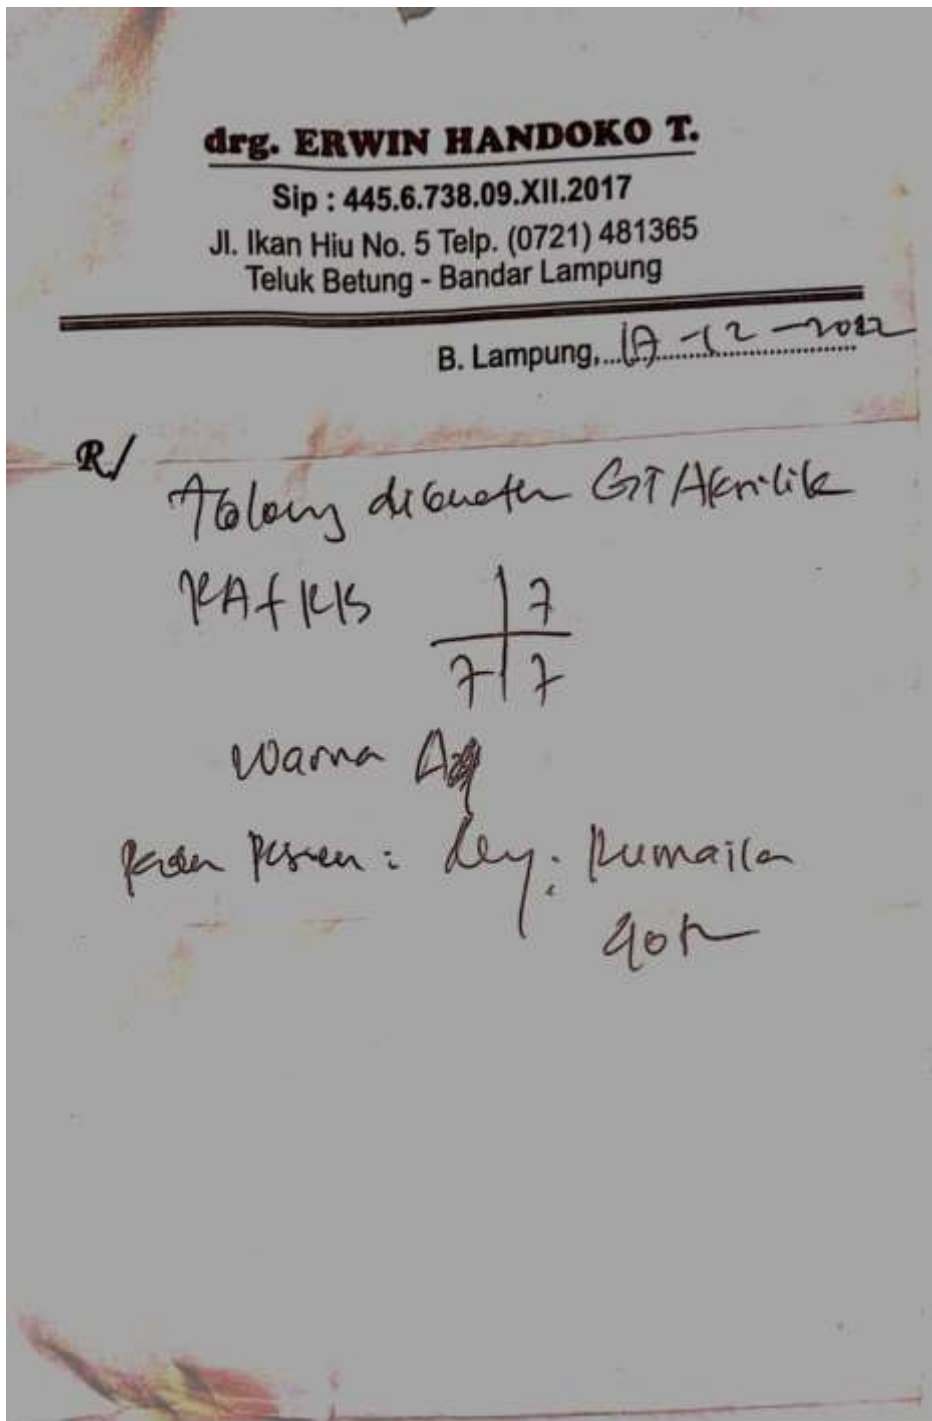 drg. ERWIN HANDOKO T.
Sip : 445.6.738.09.XII.2017
Jl. Ikan Hiu No. 5 Telp. (0721) 481365
Teluk Betung - Bandar Lampung
B. Lampung, -12-2022
R/
Tolong dibuatkan GT Akrilik
RA + RB
7
7 7
Warna
Pada Pasien : Ny. Kumaila